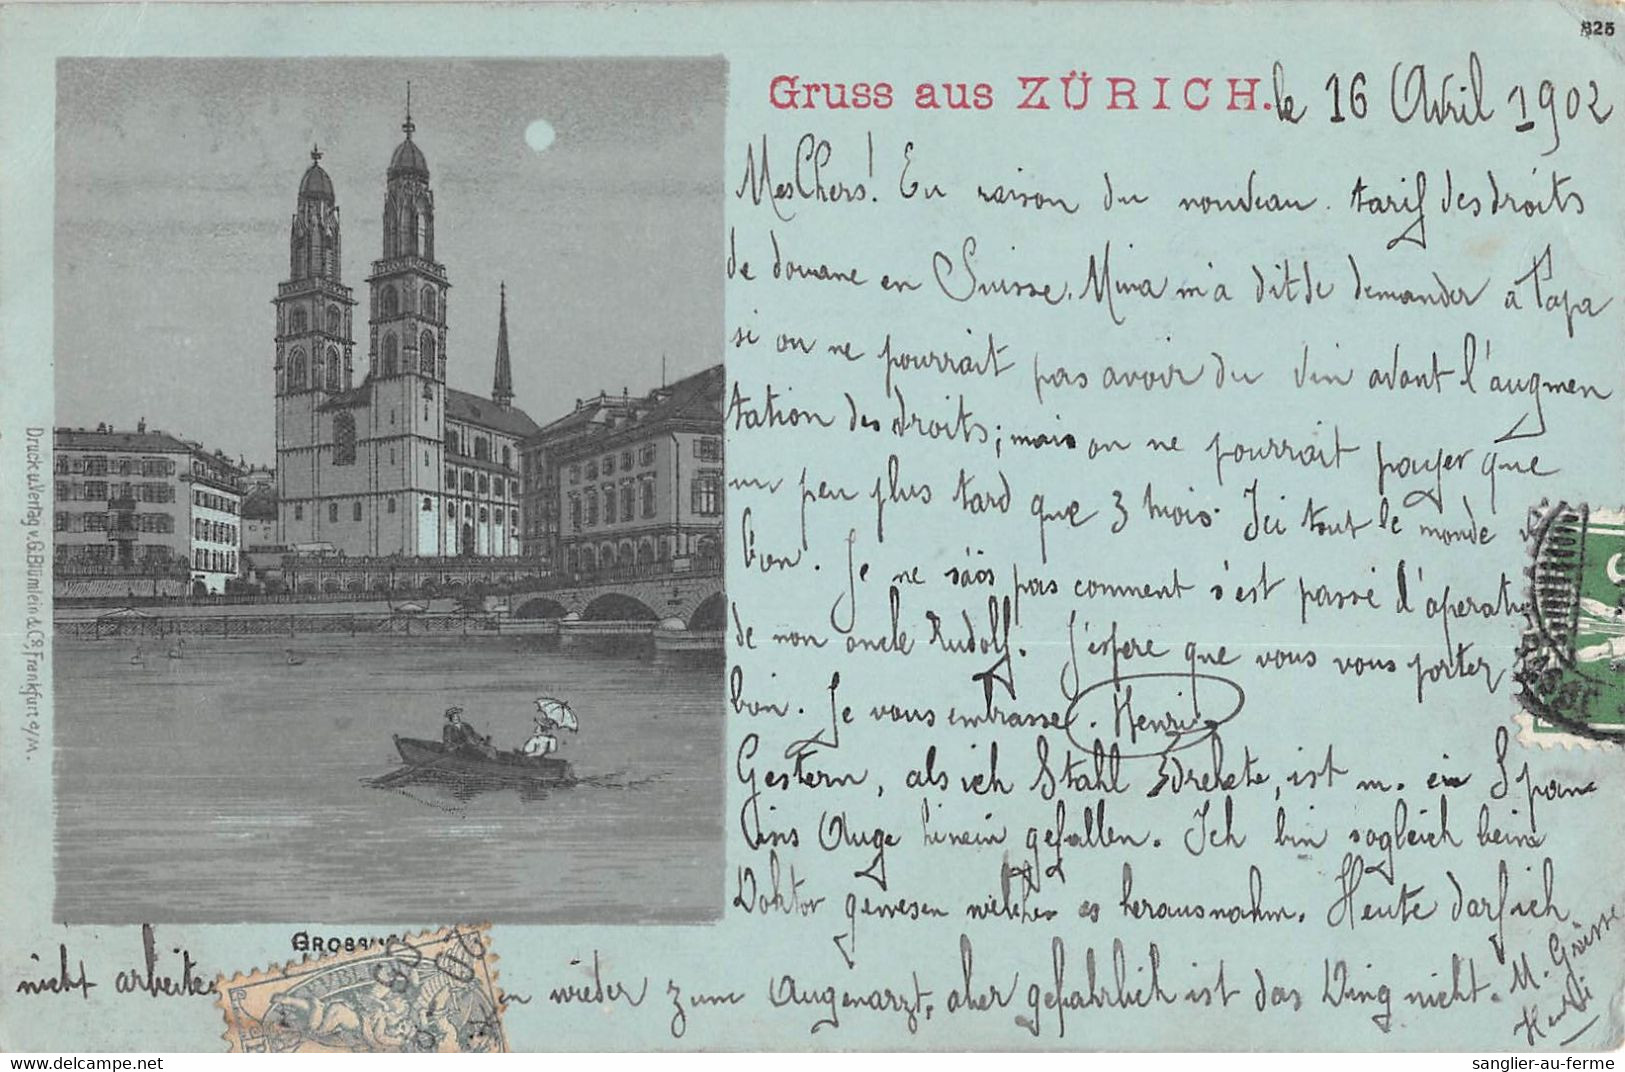 825
Gruss aus ZÜRICH. le 16 Avril 1902
Mes Chers! En raison du nouveau tarif des droits
de douane en Suisse. Mina m'a dit de demander à Papa
si on ne pourrait pas avoir du vin avant l'augmen
tation des droits; mais on ne pourrait payer que
un peu plus tard que 3 mois. Ici tout le monde
bien. Je ne sais pas comment s'est passé l'operati
de mon oncle Rudolf. J'espere que vous vous portez
bien. Je vous embrasse. Henri
Gestern, als ich Stahl drehete, ist m. ein Span
ins Auge hinein gefallen. Ich bin sogleich beim
Doktor gewesen welcher es herausnahm. Heute darf ich
nicht arbeiten wieder zum Augenarzt, aber gefährlich ist das Ding nicht. M. Grüsse
Henri
GROSSM
Druck u. Verlag v. G. Blümlein & Co, Frankfurt a/M.
sanglier-au-ferme